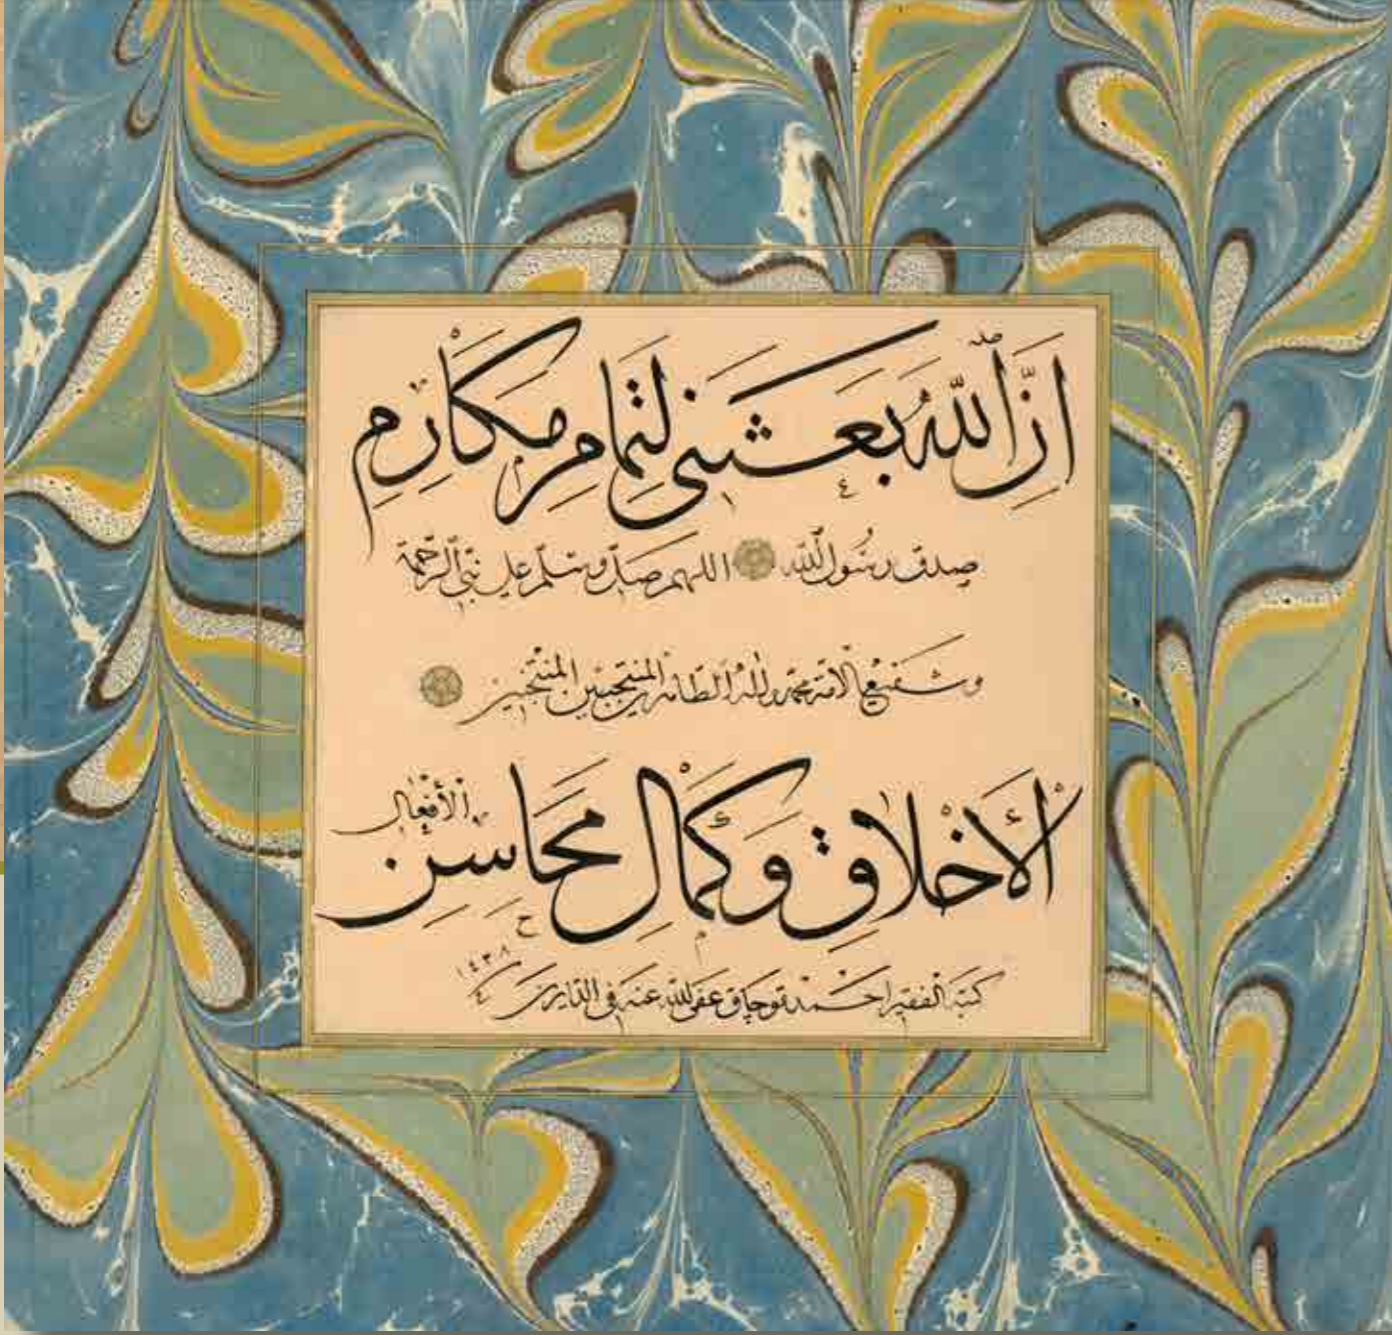 إِنَّ اللهَ بَعَثَنِي لِتَمَامِ مَكَارِمِ
صدق رسول الله اللهم صل وسلم على نبي الرحمة
وشفيع الأمة محمد وآله الطاهرين المنتجبين المنتجبين
الْأَخْلَاقِ وَكَمَالِ مَحَاسِنِ الْأَفْعَالِ
كتبه الفقير احمد قوجاق عفى الله عنه في الدارين ١٤٣٨